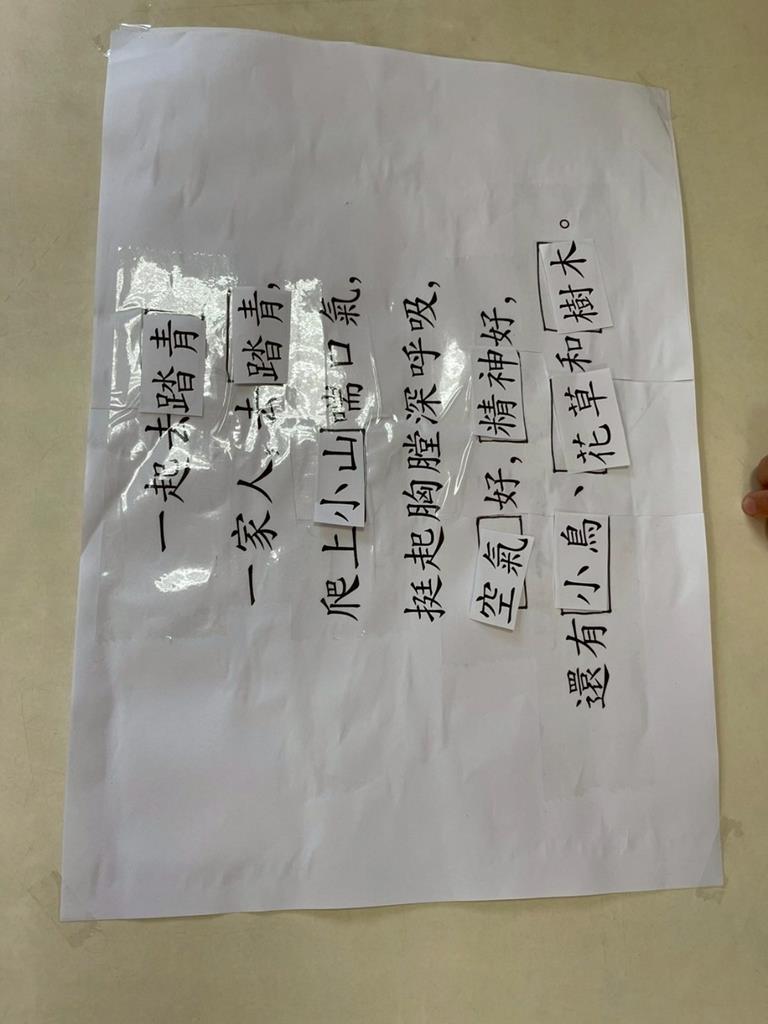 一起去踏青
一家人去踏青，
爬上小山喘口氣，
挺起胸膛深呼吸，
空氣好，精神好，
還有小鳥、花草和樹木。